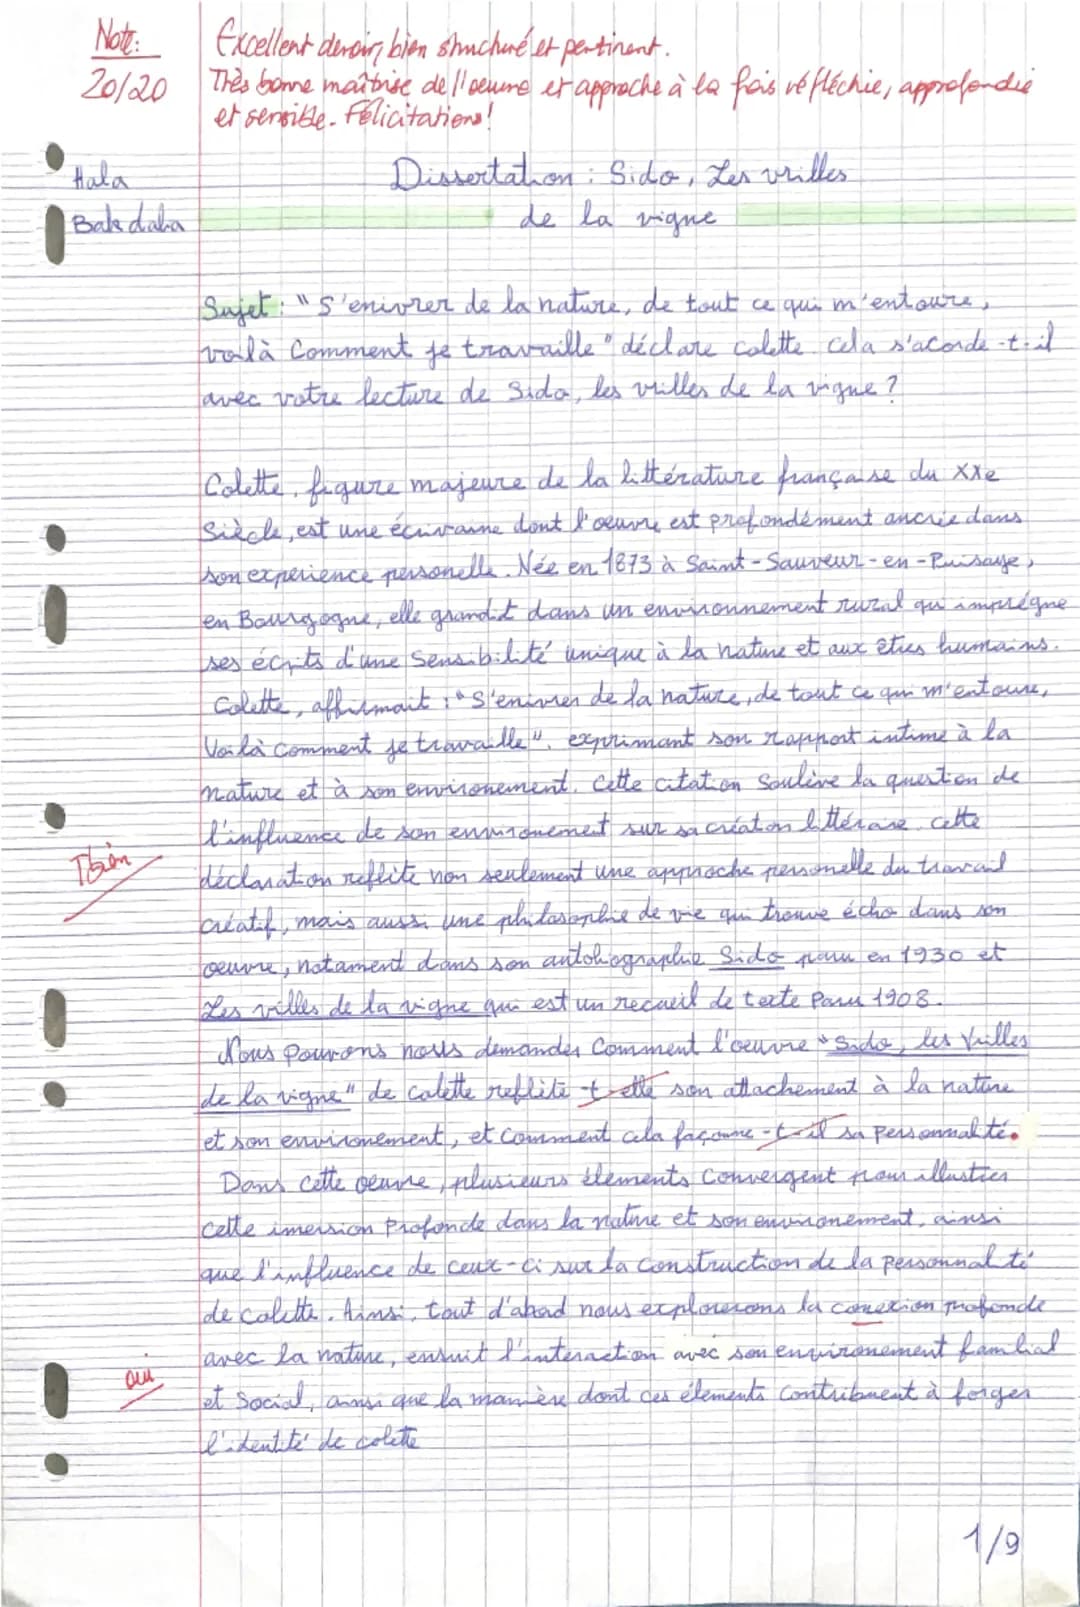 Note:
20/20
Excellent devoir, bien structuré et pertinent.
Très bonne maîtrise de l'oeuvre et approche à la fois réfléchie, approfondie
et sensible. Félicitations!
Hala
Bakdaha
Dissertation : Sido, Les vrilles
de la vigne
Sujet : "S'enivrer de la nature, de tout ce qui m'entoure,
voilà Comment je travaille" déclare colette. cela s'acorde-t-il
avec votre lecture de Sido, les vrilles de la vigne ?
Colette, figure majeure de la littérature française du XXe
Siècle, est une écrivaine dont l'oeuvre est profondément ancrée dans
son experience personelle. Née en 1873 à Saint-Sauveur-en-Puisaye,
en Bourgogne, elle grandit dans un environnement rural qui imprégne
ses écrits d'une Sensibilité unique à la nature et aux êtres humains.
Colette, affirmait : "S'enivrer de la nature, de tout ce qui m'entoure,
Voilà comment je travaille", exprimant son rapport intime à la
nature et à son environement. Cette citation Soulève la question de
l'influence de son environement sur sa création littéraire. cette
déclaration reflète non seulement une approche personelle du travail
créatif, mais aussi une philosophie de vie qui trouve écho dans son
oeuvre, notament dans son autobiographie Sido paru en 1930 et
Les villes de la vigne qui est un recueil de texte Paru 1908.
Nous pouvons nous demander Comment l'oeuvre "Sido, les Vrilles
de la vigne" de colette reflète-t-elle son attachement à la nature
et son environement, et Comment cela façonne-t-il sa Personnalité.
Dans cette oeuvre, plusieurs élements Convergent pour illustrer
cette imersion Profonde dans la nature et son environement, ainsi
que l'influence de ceux-ci sur la construction de la personnalité
de colette. Ainsi, tout d'abord nous explorerons la conexion profonde
avec la nature, ensuit l'interaction avec son environement familial
et Social, ainsi que la manière dont ces élements Contribuent à forger
l'identité de colette
Tbien
oui
1/9